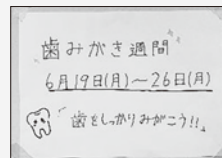 歯みがき週間
6月19日(月)～26日(月)
歯をしっかりみがこう!!